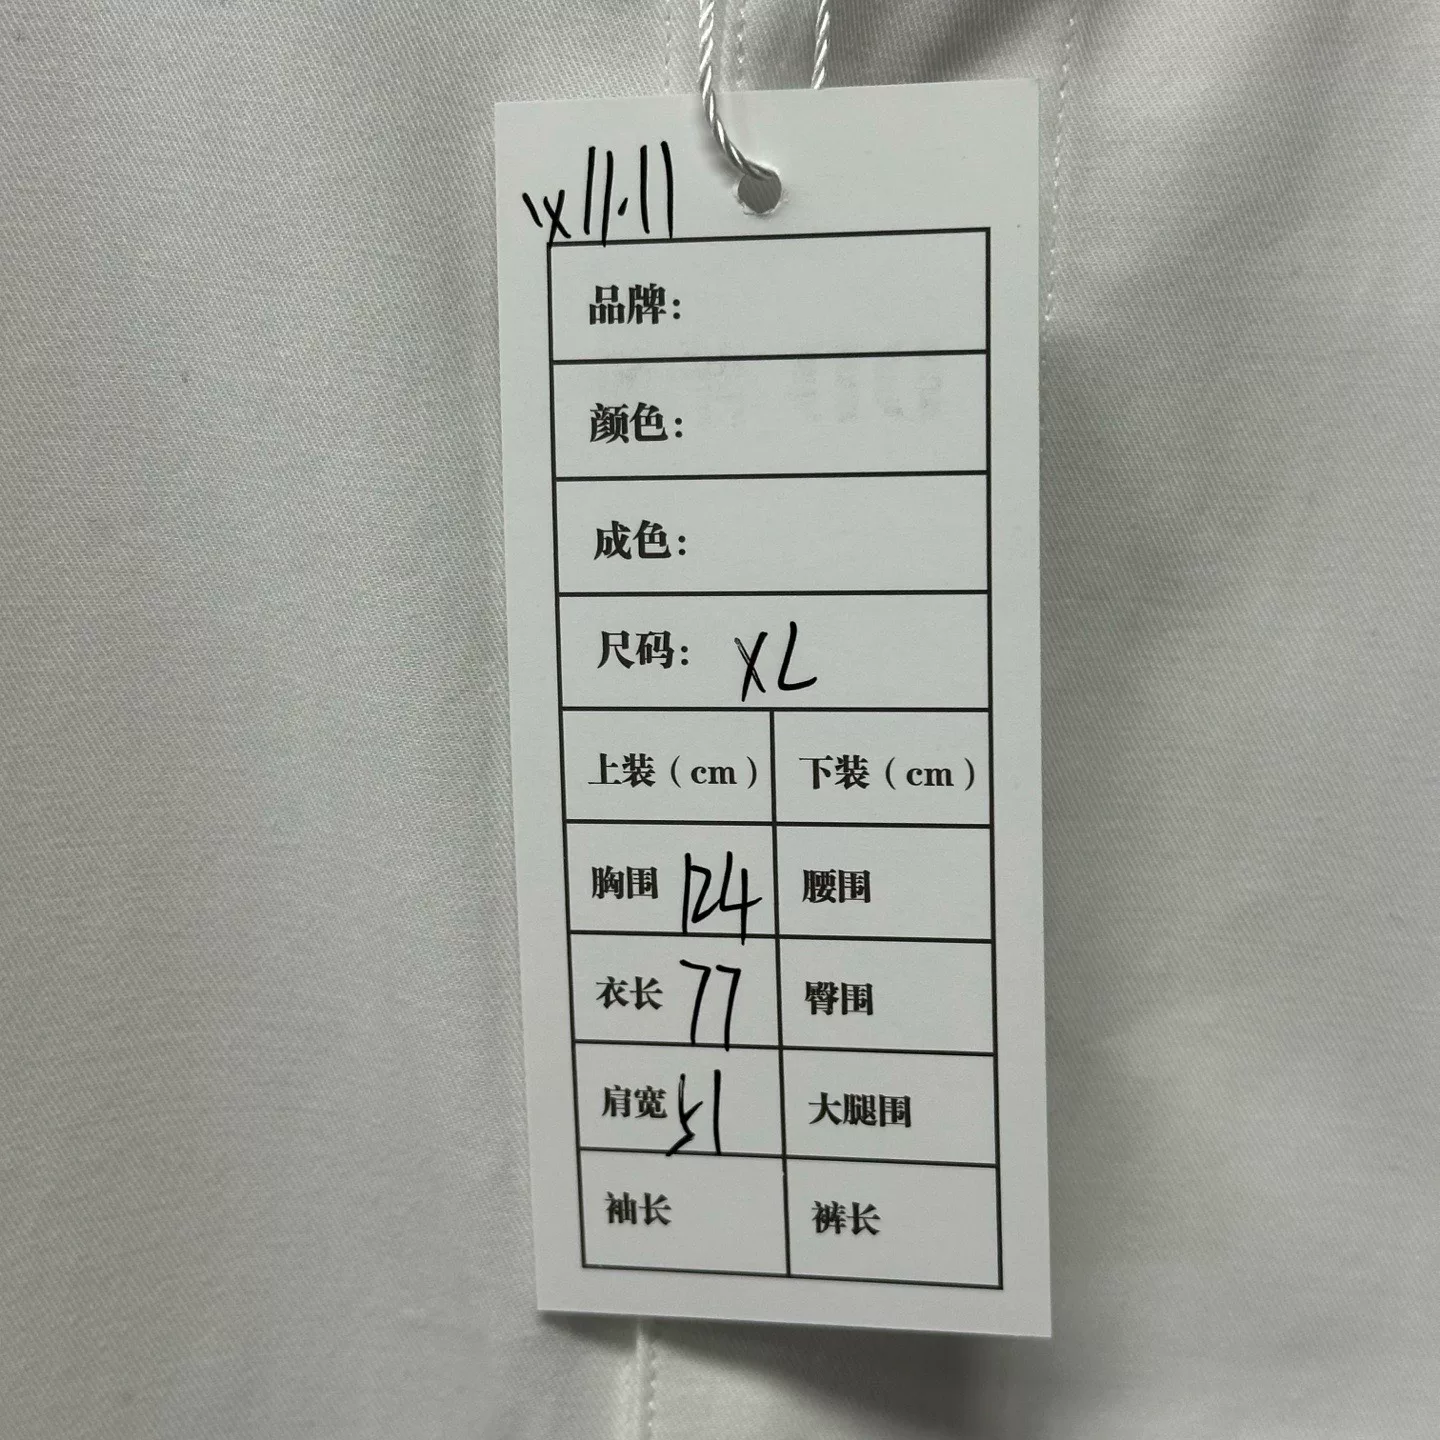 11.11
品牌：
颜色：
成色：
尺码： XL
上装（cm） 下装（cm）
胸围 124 腰围
衣长 77 臀围
肩宽 51 大腿围
袖长 裤长